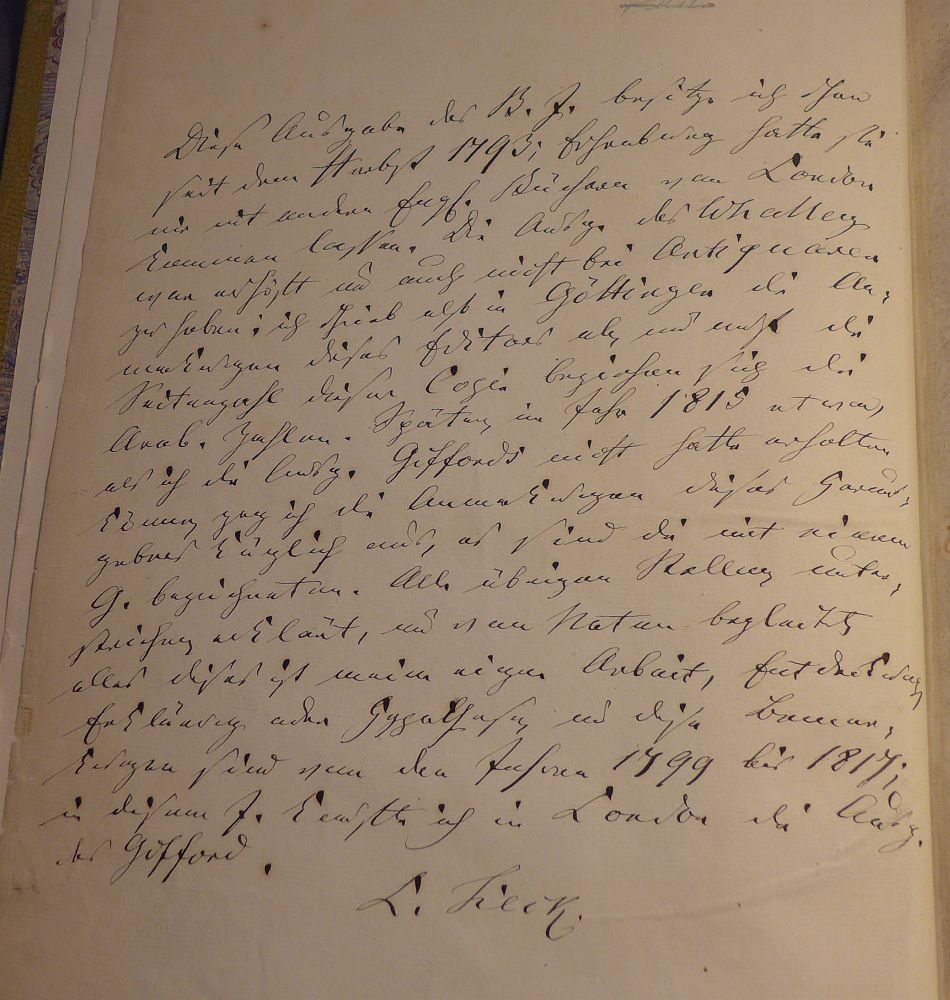 Diese Ausgabe des B. J. besitze ich schon
seit dem Herbst 1793; Eschenburg hatte sie
mir mit andern Engl. Büchern von London
kommen lassen. Die Ausg. des Whalley
war erhöht und auch nicht bei Antiquaren
zu haben: ich schrieb also in Göttingen die An-
merkungen dieses Editors ab, und auf die
Seitenzahl dieser Copie beziehen sich die
Arab. Zahlen. Später, im Jahr 1815 etwa,
als ich die Ausg. Giffords nicht hatte erhalten
können, zog ich die Anmerkungen dieses Heraus-
gebers kürzlich aus, es sind die mit einem
G. bezeichneten. Alle übrigen Stellen, unter-
strichen, erklärt, und von Noten begleitet,
alles dieses ist meine eigne Arbeit, Entdeckung,
Erklärung oder Hypothese, und diese Bemer-
kungen sind von den Jahren 1799 bis 1817;
in diesem J. kaufte ich in London die Ausg.
des Gifford.
L. Tieck.